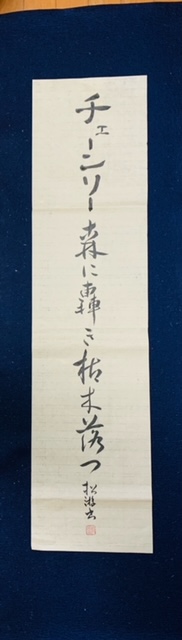 チェーンソー森に轟き枯木落つ
松游書